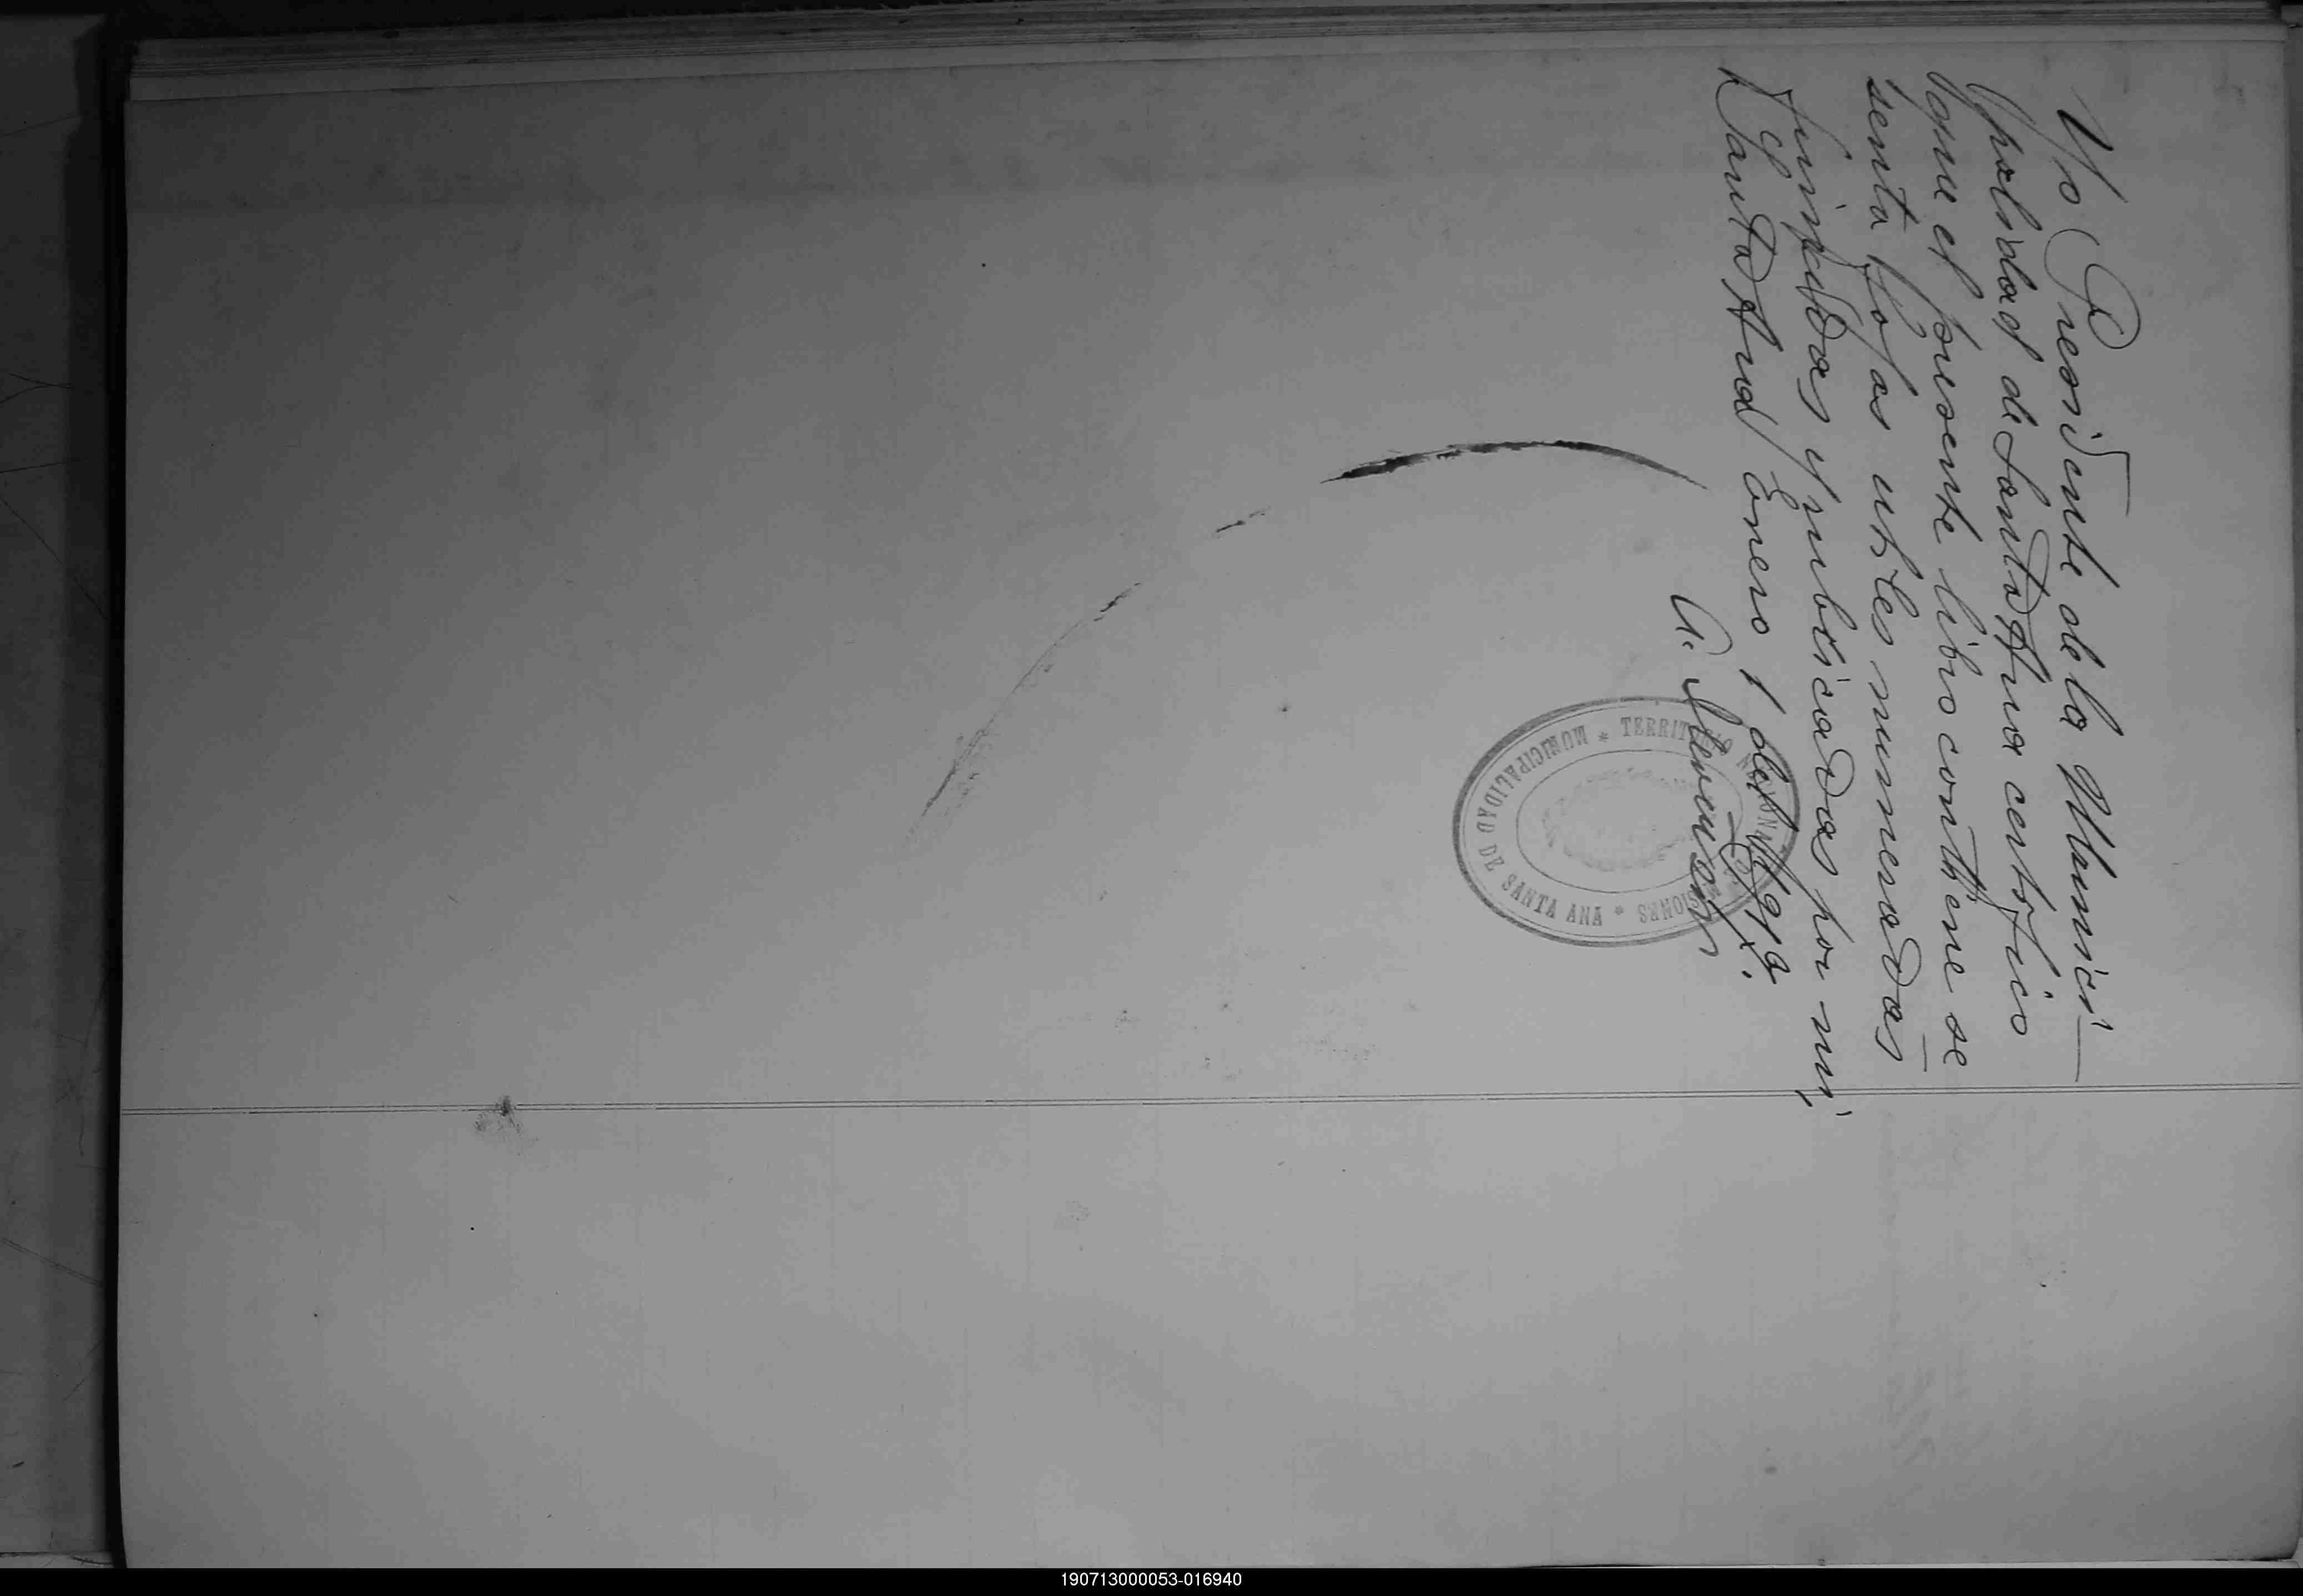 Yo Presidente de la Munici-
palidad de Santa Ana certifico
que el presente libro contiene se
senta fojas utiles numeradas
y rubricadas por mi,
Santa Ana Enero 1 del 1919.
MUNICIPALIDAD DE SANTA ANA * TERRITORIO NACIONAL DE MISIONES *
190713000053-016940